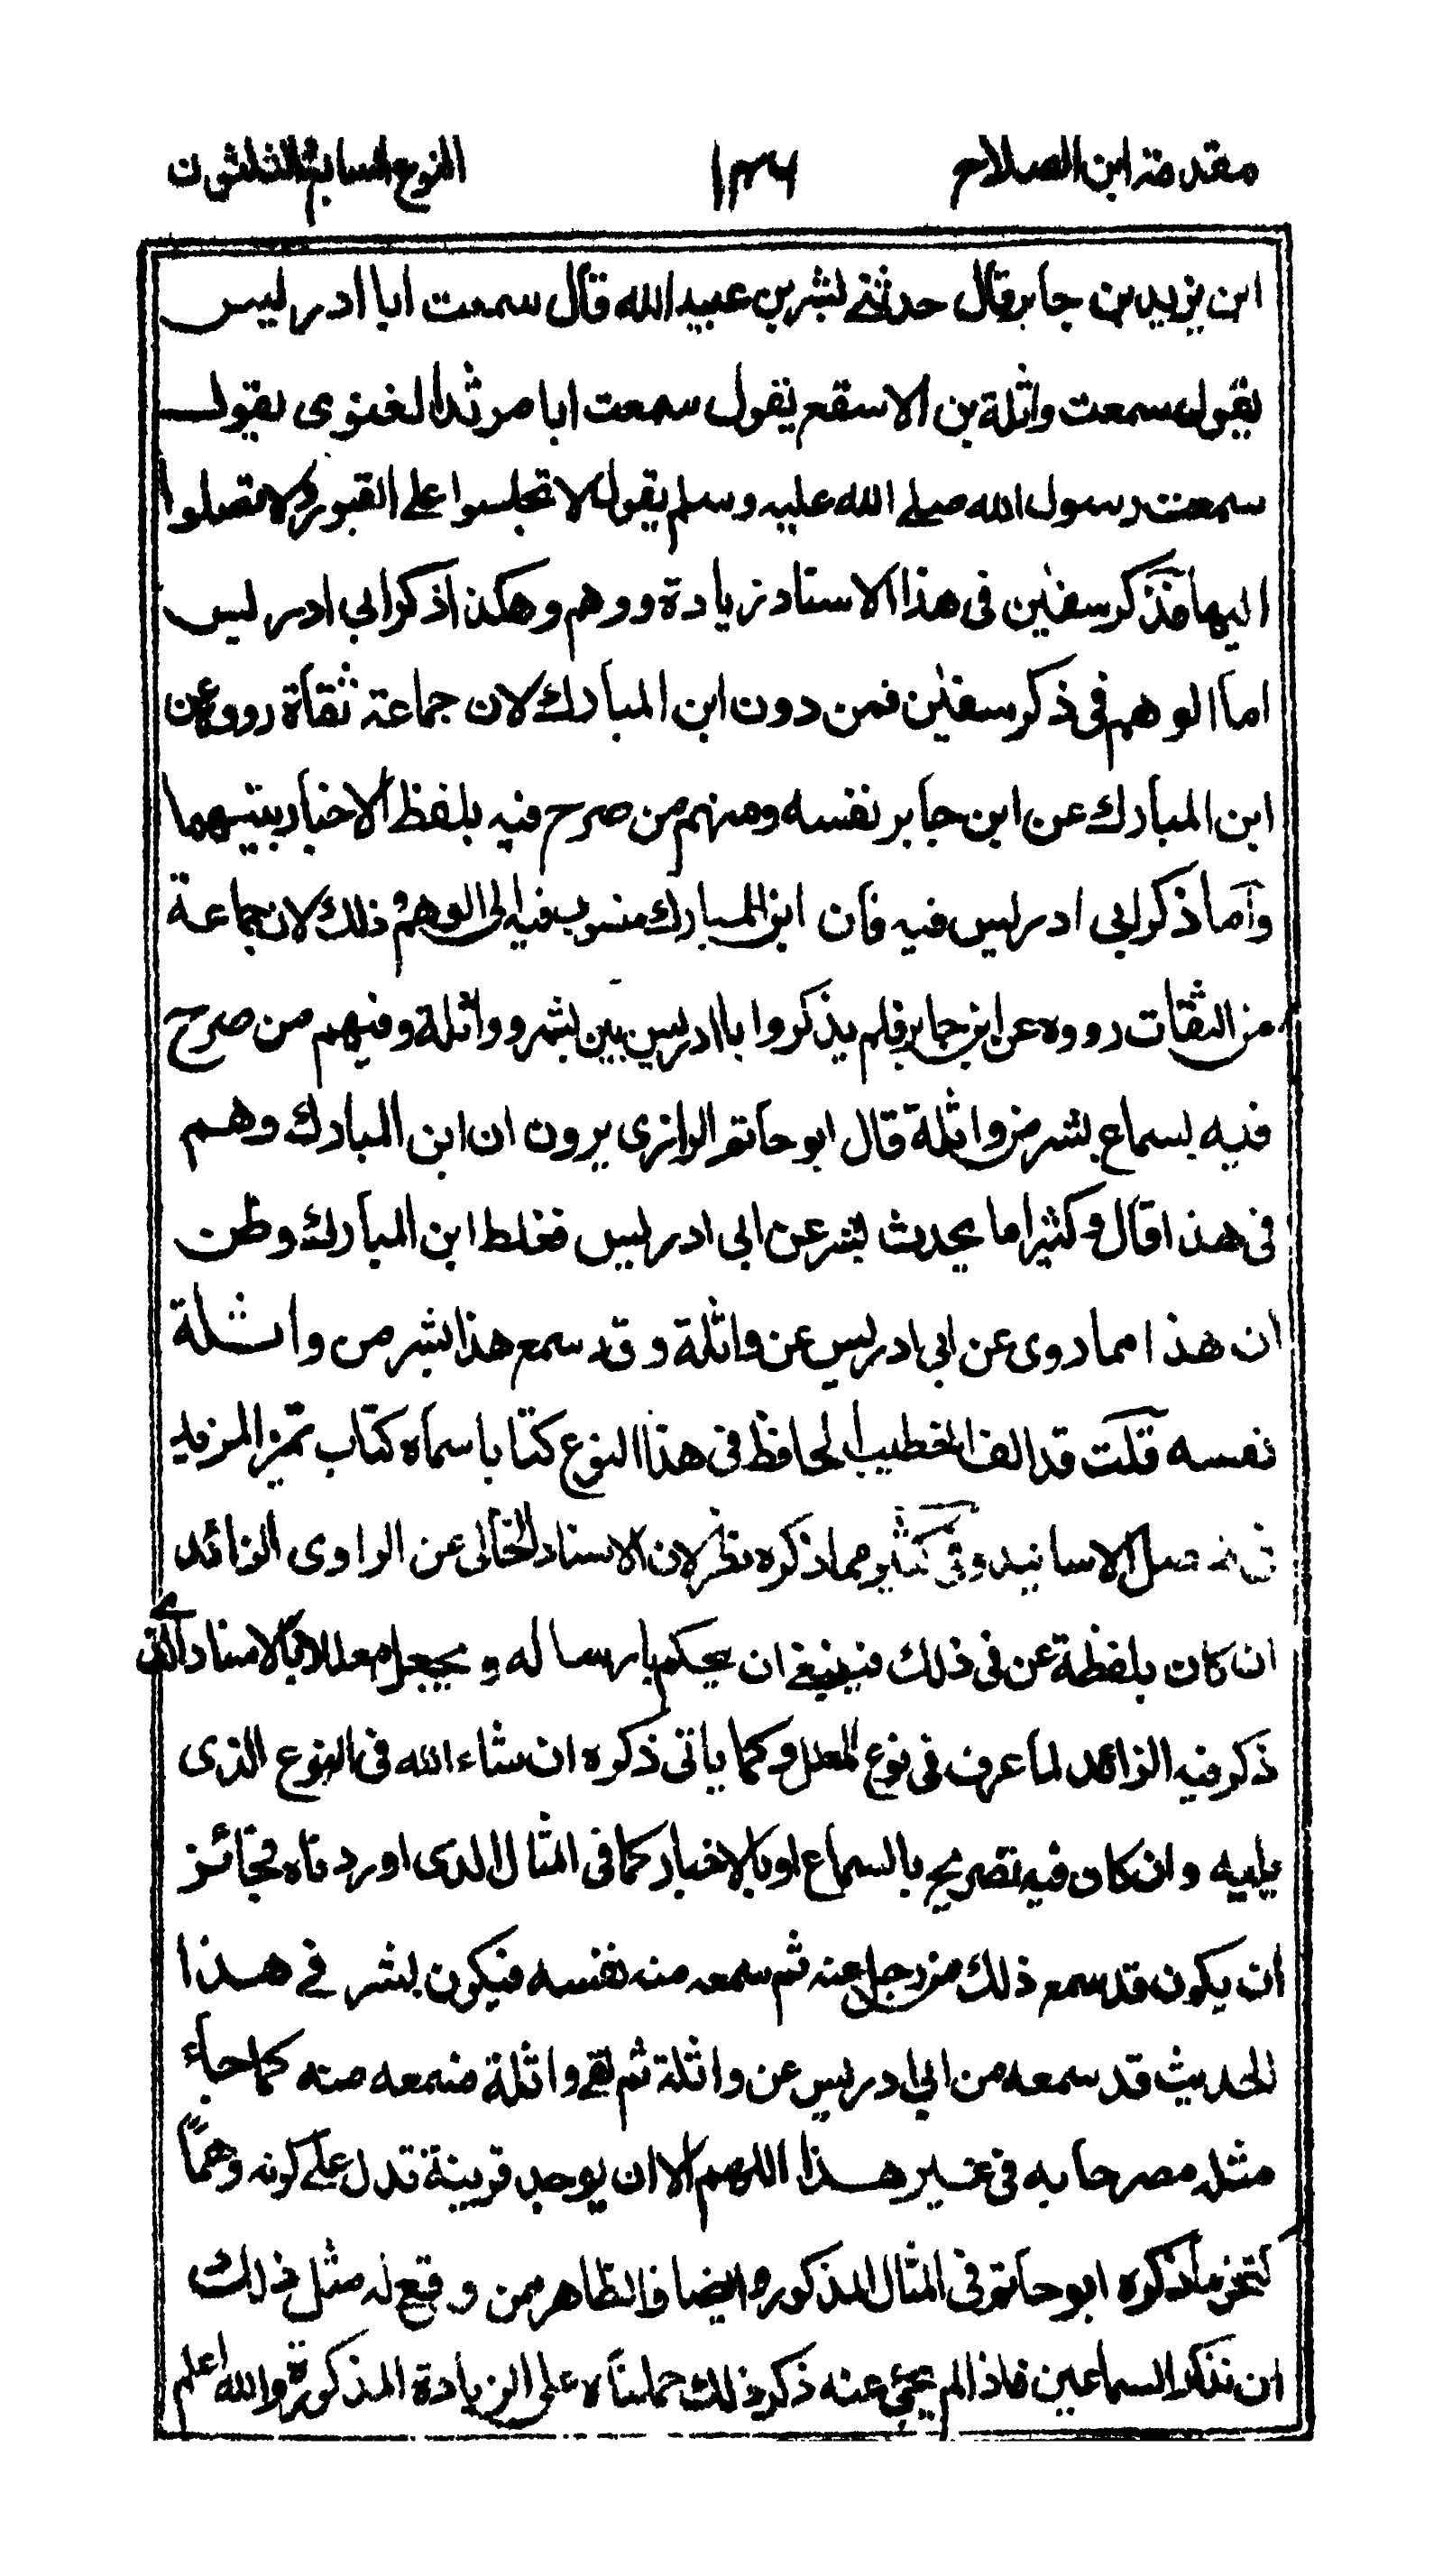 مقدمة ابن الصلاح ١٣٦ النوع السابع الثلثون
ابن يزيد بن جابر قال حدثنى بشر بن عبيد الله قال سمعت ابا ادريس
يقول سمعت واثلة بن الاسقع يقول سمعت ابا مرثد الغنوى يقول
سمعت رسول الله صلے الله عليه وسلم يقول لا تجلسوا علے القبور ولا تصلوا
اليها فذكر سفين فى هذا الاسناد زيادة ووهم وهكذا ذكر ابى ادريس
اما الوهم فى ذكر سفين فمن دون ابن المبارك لان جماعة ثقاة رووه عن
ابن المبارك عن ابن جابر نفسه ومنهم من صرح فيه بلفظ الاخبار بينهما
وأما ذكر ابى ادريس فيه فان ابن المبارك منسوب فيه الى الوهم وذلك لان جماعة
من الثقات رووه عن ابن جابر فلم يذكروا با ادريس بين بشر وواثلة وفيهم من صرح
فيه بسماع بشر من واثلة قال ابو حاتم الرازى يرون ان ابن المبارك وهم
فى هذا قال وكثيرا ما يحدث بشر عن ابى ادريس فغلط ابن المبارك وظن
ان هذا مما روى عن ابى ادريس عن واثلة وقد سمع هذا بشر من واثلة
نفسه قلت قد الف الخطيب الحافظ فى هذا النوع كتابا سماه كتاب تميز المزيد
فى متصل الاسانيد وفى كثير مما ذكره نظر لان الاسناد الخالى عن الراوى الزائد
ان كان بلفظة عن فى ذلك فينبغے ان يحكم بارساله ويجعل معللا بالاسناد الذى
ذكر فيه الزائد لما عرف فى نوع المعلل وكما ياتى ذكره ان شاء الله فى النوع الذى
يليه وان كان فيه تصريح بالسماع او بالاخبار كما فى المثال الذى اوردناه فجائز
ان يكون قد سمع ذلك من رجل عنه ثم سمعه منه نفسه فيكون بشر فے هذا
الحديث قد سمعه من ابى ادريس عن واثلة ثم لقے واثلة فسمعه منه كما جاء
مثله مصرحا به فى غير هذا اللهم الا ان يوجد قرينة تدل علے كونه وهمًا
كنحو ما ذكره ابو حاتم فى المثال المذكور وايضا فالظاهر ممن وقع له مثل ذلك
ان نذكر السماعين فاذا لم يجئ عنه ذكر ذلك حملناه على الزيادة المذكورة والله اعلم